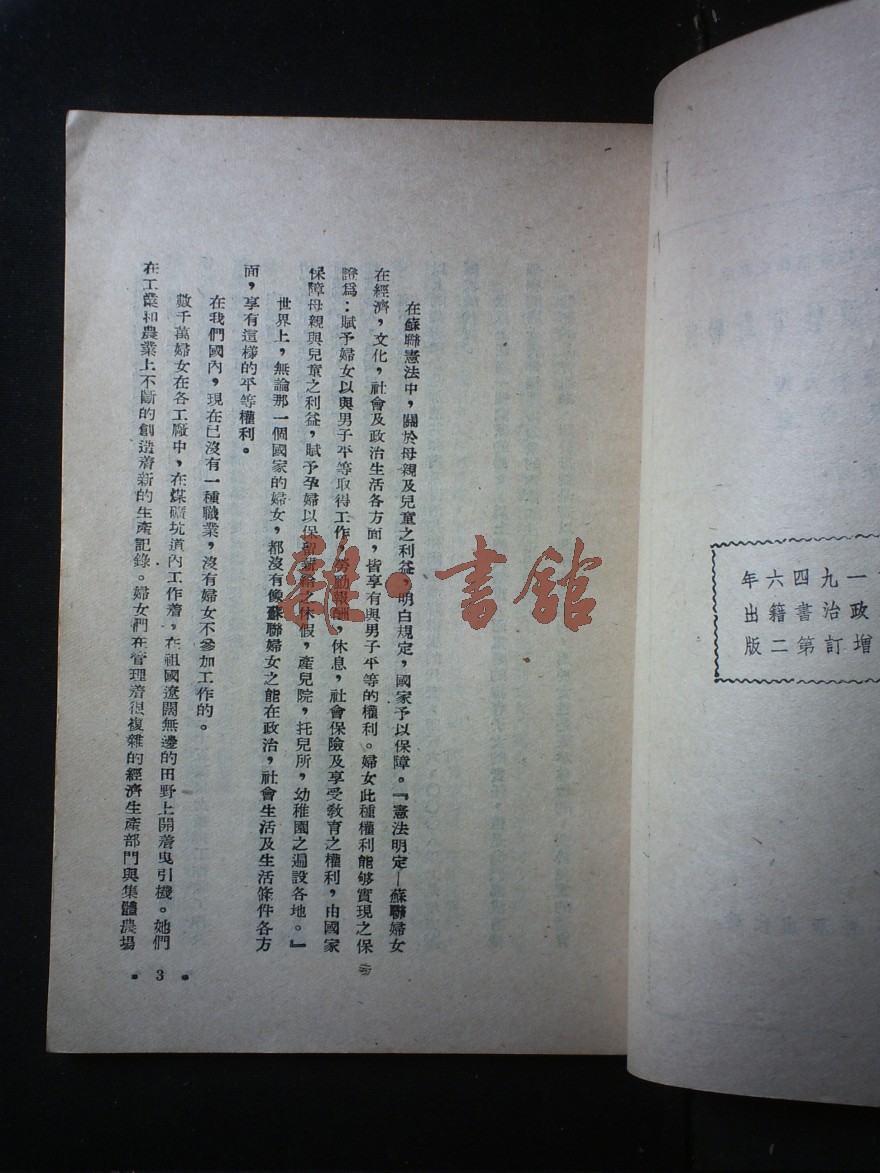 一九四六年
政治書籍出
增訂第二版
在蘇聯憲法中，關於母親及兒童之利益，明白規定，國家予以保障。『憲法明定—蘇聯婦女
在經濟，文化，社會及政治生活各方面，皆享有與男子平等的權利。婦女此種權利能够實現之保
證爲：賦予婦女以與男子平等取得工作，勞動報酬，休息，社會保險及享受教育之權利，由國家
保障母親與兒童之利益，賦予孕婦以保留薪給之休假，產兒院，托兒所，幼稚園之遍設各地。』
世界上，無論那一個國家的婦女，都沒有像蘇聯婦女之能在政治，社會生活及生活條件各方
面，享有這樣的平等權利。
在我們國內，現在已沒有一種職業，沒有婦女不參加工作的。
數千萬婦女在各工廠中，在煤礦坑道內工作着，在祖國遼闊無邊的田野上開着曳引機。她們
在工業和農業上不斷的創造着新的生產記錄。婦女們在管理着很複雜的經濟生產部門與集體農場
• 3 •
雜·書館